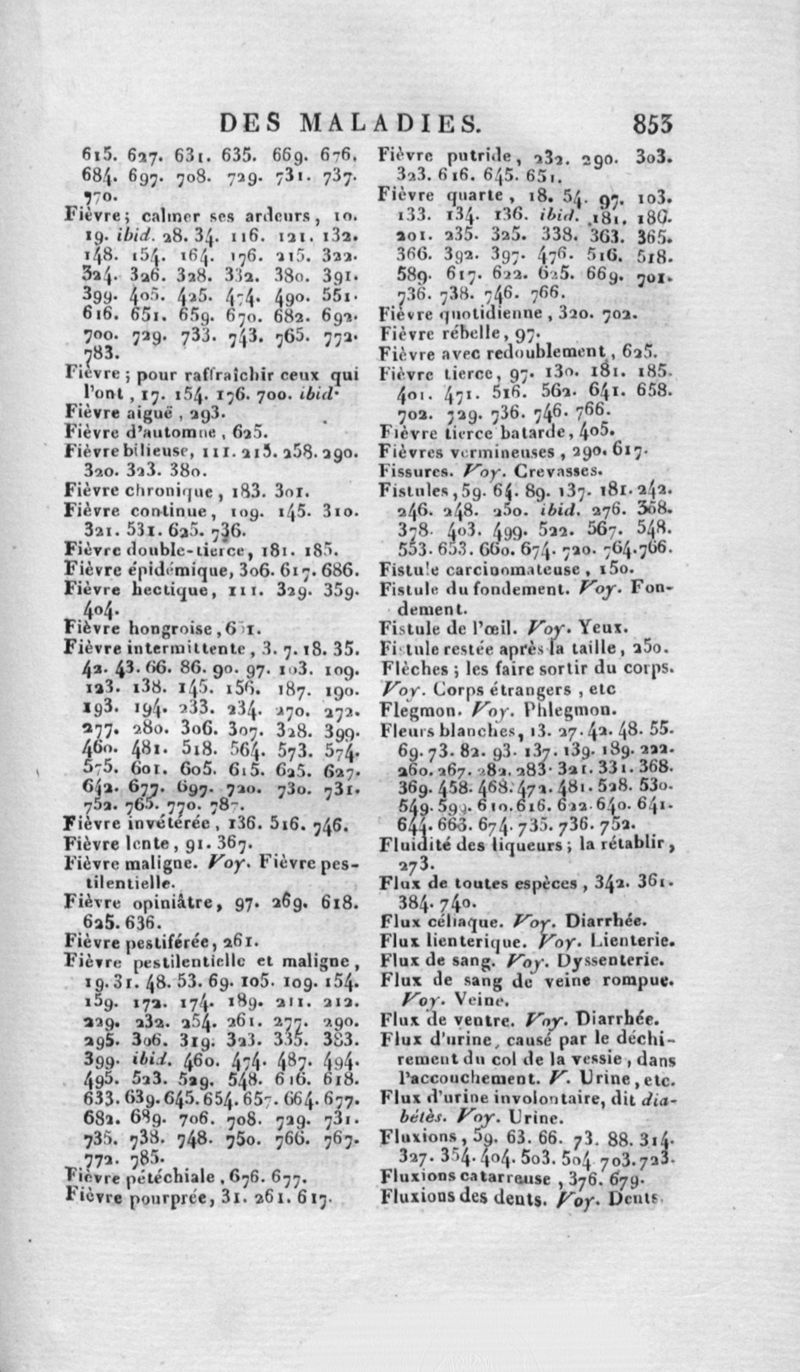 DES MALADIES. 853
615. 627. 631. 635. 669. 676.
684. 697. 708. 729. 731. 737.
770.
Fièvre; calmer ses ardeurs, 10.
19. ibid. 28. 34. 116. 121. 132.
148. 154. 164. 176. 215. 322.
324. 326. 328. 332. 380. 391.
399. 405. 425. 474. 490. 551.
616. 651. 659. 670. 682. 692.
700. 729. 733. 743. 765. 772.
783.
Fièvre; pour raffraîchir ceux qui
l'ont, 17. 154. 176. 700. ibid.
Fièvre aiguë, 293.
Fièvre d'automne, 625.
Fièvre bilieuse, 111. 215. 258. 290.
320. 323. 380.
Fièvre chronique, 183. 301.
Fièvre continue, 109. 145. 310.
321. 531. 625. 736.
Fièvre double-tierce, 181. 185.
Fièvre épidémique, 306. 617. 686.
Fièvre hectique, 111. 329. 359.
404.
Fièvre hongroise,
Fièvre intermittente, 3. 7. 18. 35.
42. 43. 66. 86. 90. 97. 103. 109.
123. 138. 145. 156. 187. 190.
193. 194. 233. 234. 270. 272.
277. 280. 306. 307. 328. 399.
460. 481. 518. 564. 573. 574.
575. 601. 605. 615. 625. 627.
642. 677. 697. 720. 730. 731.
752. 765. 770. 787.
Fièvre invétérée, 136. 516. 746.
Fièvre lente, 91. 367.
Fièvre maligne. Voy. Fièvre pes-
tilentielle.
Fièvre opiniâtre, 97. 269. 618.
625. 636.
Fièvre pestiférée, 261.
Fièvre pestilentielle et maligne,
19. 31. 48. 53. 69. 105. 109. 154.
159. 172. 174. 189. 211. 212.
229. 232. 254. 261. 277. 290.
295. 306. 319. 323. 335. 383.
399. ibid. 460. 474. 487. 494.
495. 523. 529. 548. 616. 618.
633. 639. 645. 654. 657. 664. 677.
682. 689. 706. 708. 729. 731.
735. 738. 748. 750. 766. 767.
772. 785.
Fièvre pétéchiale, 676. 677.
Fièvre pourprée, 31. 261. 617.
Fièvre putride, 232. 290. 303.
323. 616. 645. 651.
Fièvre quarte, 18. 54. 97. 103.
133. 134. 136. ibid. 181. 186.
201. 235. 325. 338. 363. 365.
366. 392. 397. 476. 516. 518.
589. 617. 622. 625. 669. 701.
736. 738. 746. 766.
Fièvre quotidienne, 320. 702.
Fièvre rébelle, 97.
Fièvre avec redoublement, 625.
Fièvre tierce, 97. 130. 181. 185.
401. 471. 516. 562. 641. 658.
702. 729. 736. 746. 766.
Fièvre tierce batarde, 405.
Fièvres vermineuses, 290. 617.
Fissures. Voy. Crevasses.
Fistules, 59. 64. 89. 137. 181. 242.
246. 248. 250. ibid. 276. 368.
378. 403. 499. 522. 567. 548.
553. 653. 660. 674. 720. 764. 766.
Fistule carcinomateuse, 150.
Fistule du fondement. Voy. Fon-
dement.
Fistule de l'œil. Voy. Yeux.
Fistule restée après la taille, 250.
Flèches; les faire sortir du corps.
Voy. Corps étrangers, etc
Flegmon. Voy. Phlegmon.
Fleurs blanches, 13. 27. 42. 48. 55.
69. 73. 82. 93. 137. 139. 189. 222.
260. 267. 282. 283. 321. 331. 368.
369. 458. 468. 472. 481. 528. 530.
549. 599. 610. 616. 622. 640. 641.
644. 663. 674. 735. 736. 752.
Fluidité des liqueurs; la rétablir,
273.
Flux de toutes espèces, 342. 361.
384. 740.
Flux céliaque. Voy. Diarrhée.
Flux lienterique. Voy. Lienterie.
Flux de sang. Voy. Dyssenterie.
Flux de sang de veine rompue.
Voy. Veine.
Flux de ventre. Voy. Diarrhée.
Flux d'urine, causé par le déchi-
rement du col de la vessie, dans
l'accouchement. V. Urine, etc.
Flux d'urine involontaire, dit dia-
bétès. Voy. Urine.
Fluxions, 59. 63. 66. 73. 88. 314.
327. 354. 404. 503. 504 703. 723.
Fluxions catarreuse, 376. 679.
Fluxions des dents. Voy. Dents.